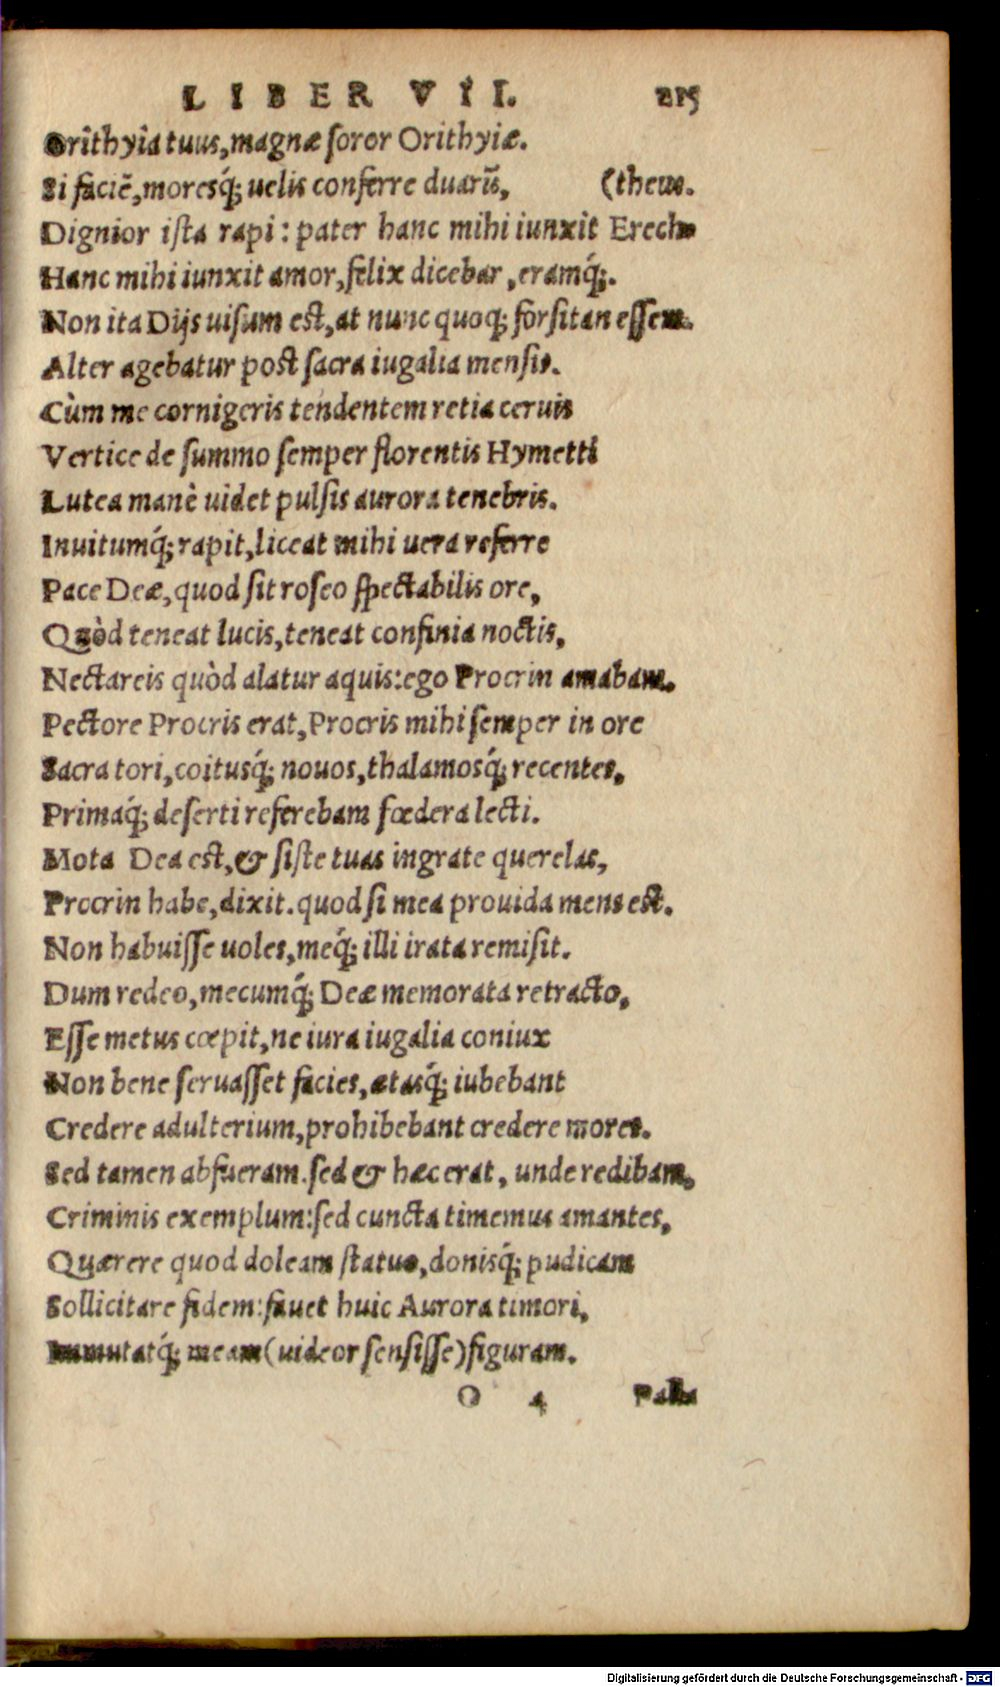 LIBER VII. 215
Orîthyîa tuus, magnæ soror Orithyiæ.
Si faciē, moresq́; uelis conferre duarū, (theus.
Dignior ista rapi: pater hanc mihi iunxit Erech-
Hanc mihi iunxit amor, felix dicebar, eramq́;.
Non ita Dijs uisum est, at nunc quoq; forsitan essem.
Alter agebatur post sacra iugalia mensis.
Cùm me cornigeris tendentem retia ceruis
Vertice de summo semper florentis Hymetti
Lutea manè uidet pulsis aurora tenebris.
Inuitumq́; rapit, liceat mihi uera referre
Pace Deæ, quod sit roseo spectabilis ore,
Quòd teneat lucis, teneat confinia noctis,
Nectareis quòd alatur aquis: ego Procrin amabam.
Pectore Procris erat, Procris mihi semper in ore
Sacra tori, coitusq́; nouos, thalamosq́; recentes,
Primaq́; deserti referebam fœdera lecti.
Mota Dea est, & siste tuas ingrate querelas,
Procrin habe, dixit. quod si mea prouida mens est.
Non habuisse uoles, meq́; illi irata remisit.
Dum redeo, mecumq́; Deæ memorata retracto,
Esse metus cœpit, ne iura iugalia coniux
Non bene seruasset facies, ætasq́; iubebant
Credere adulterium, prohibebant credere mores.
Sed tamen abfueram. sed & hæc erat, unde redibam,
Criminis exemplum: sed cuncta timemus amantes,
Quærere quod doleam statuo, donisq́; pudicam
Sollicitare fidem: fauet huic Aurora timori,
Immutatq́; meam (uideor sensisse) figuram.
O 4 Palla
Digitalisierung gefördert durch die Deutsche Forschungsgemeinschaft - DFG